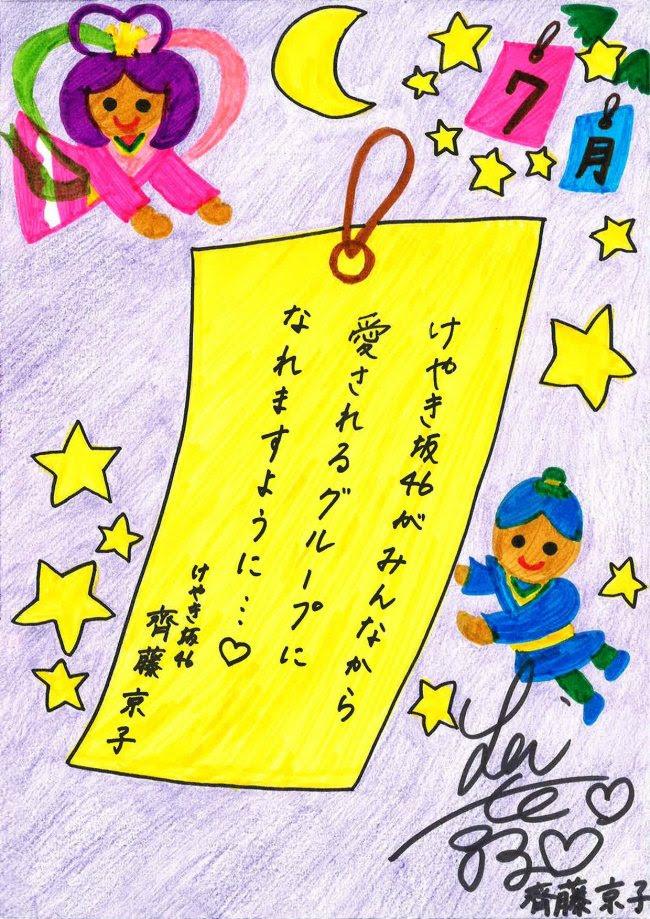 7
月
けやき坂46がみんなから
愛されるグループに
なれますように…♡
けやき坂46
齊藤京子
齊藤京子